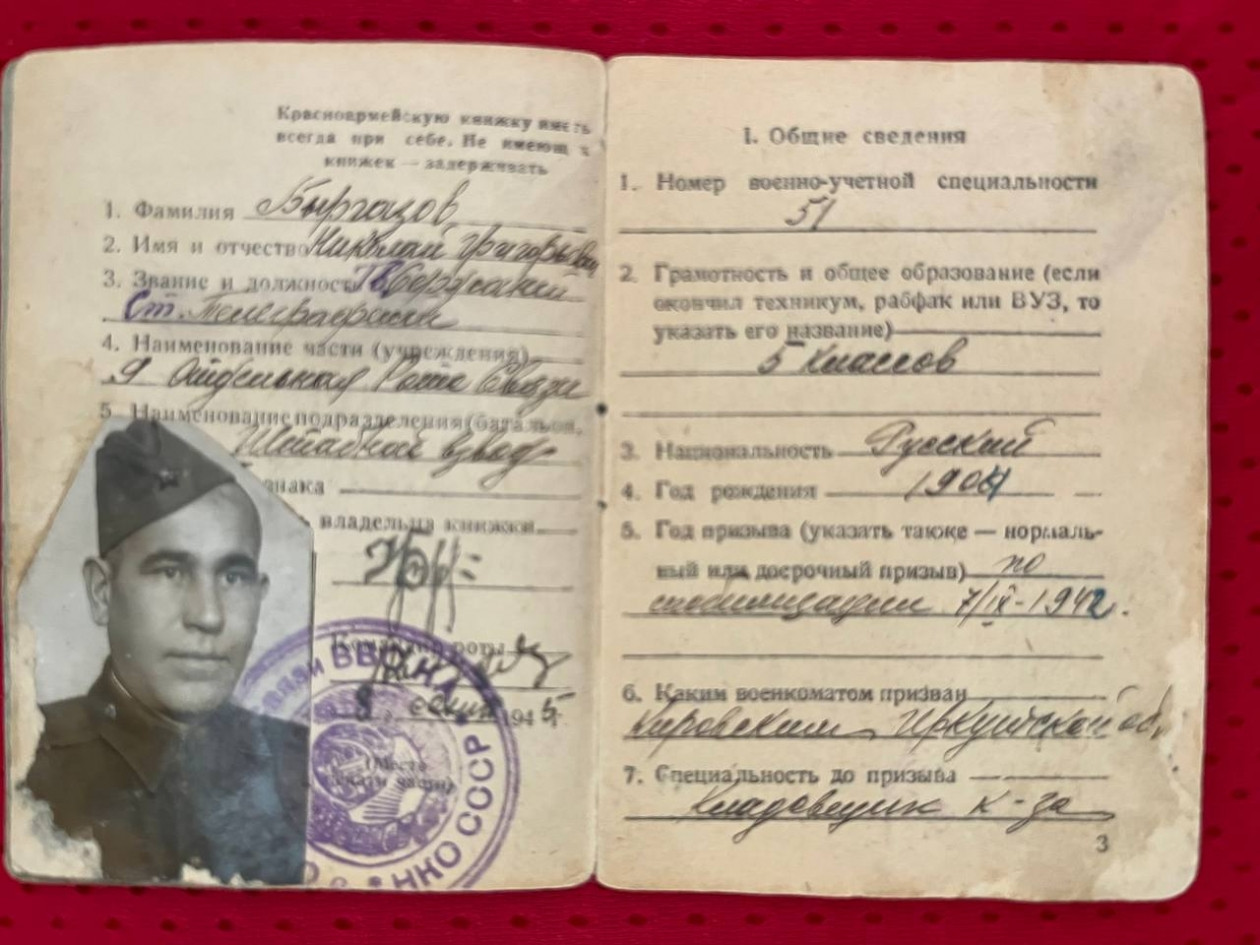 Красноармейскую книжку иметь
всегда при себе. Не имеющ х
книжек — задерживать
1. Фамилия Быргазов
2. Имя и отчество Николай Григорьевич
3. Звание и должность Гв. Сержант
Ст. Телеграфист
4. Наименование части (учреждения)
9 Отдельная Рота Связи
5 Наименование подразделения (батальон,
Штабной взвод
знака
владельца книжки
Командир роты
8 194
(Место
печати части)
НКО СССР
I. Общие сведения
1. Номер военно-учетной специальности
51
2. Грамотность и общее образование (если
окончил техникум, рабфак или ВУЗ, то
указать его название)
5 классов
3. Национальность Русский
4. Год рождения 1904
5. Год призыва (указать также — нормаль-
ный или досрочный призыв) по
мобилизации 7/IX-1942.
6. Каким военкоматом призван
Кировским Иркутской об.
7. Специальность до призыва
Кладовщик к-за
3